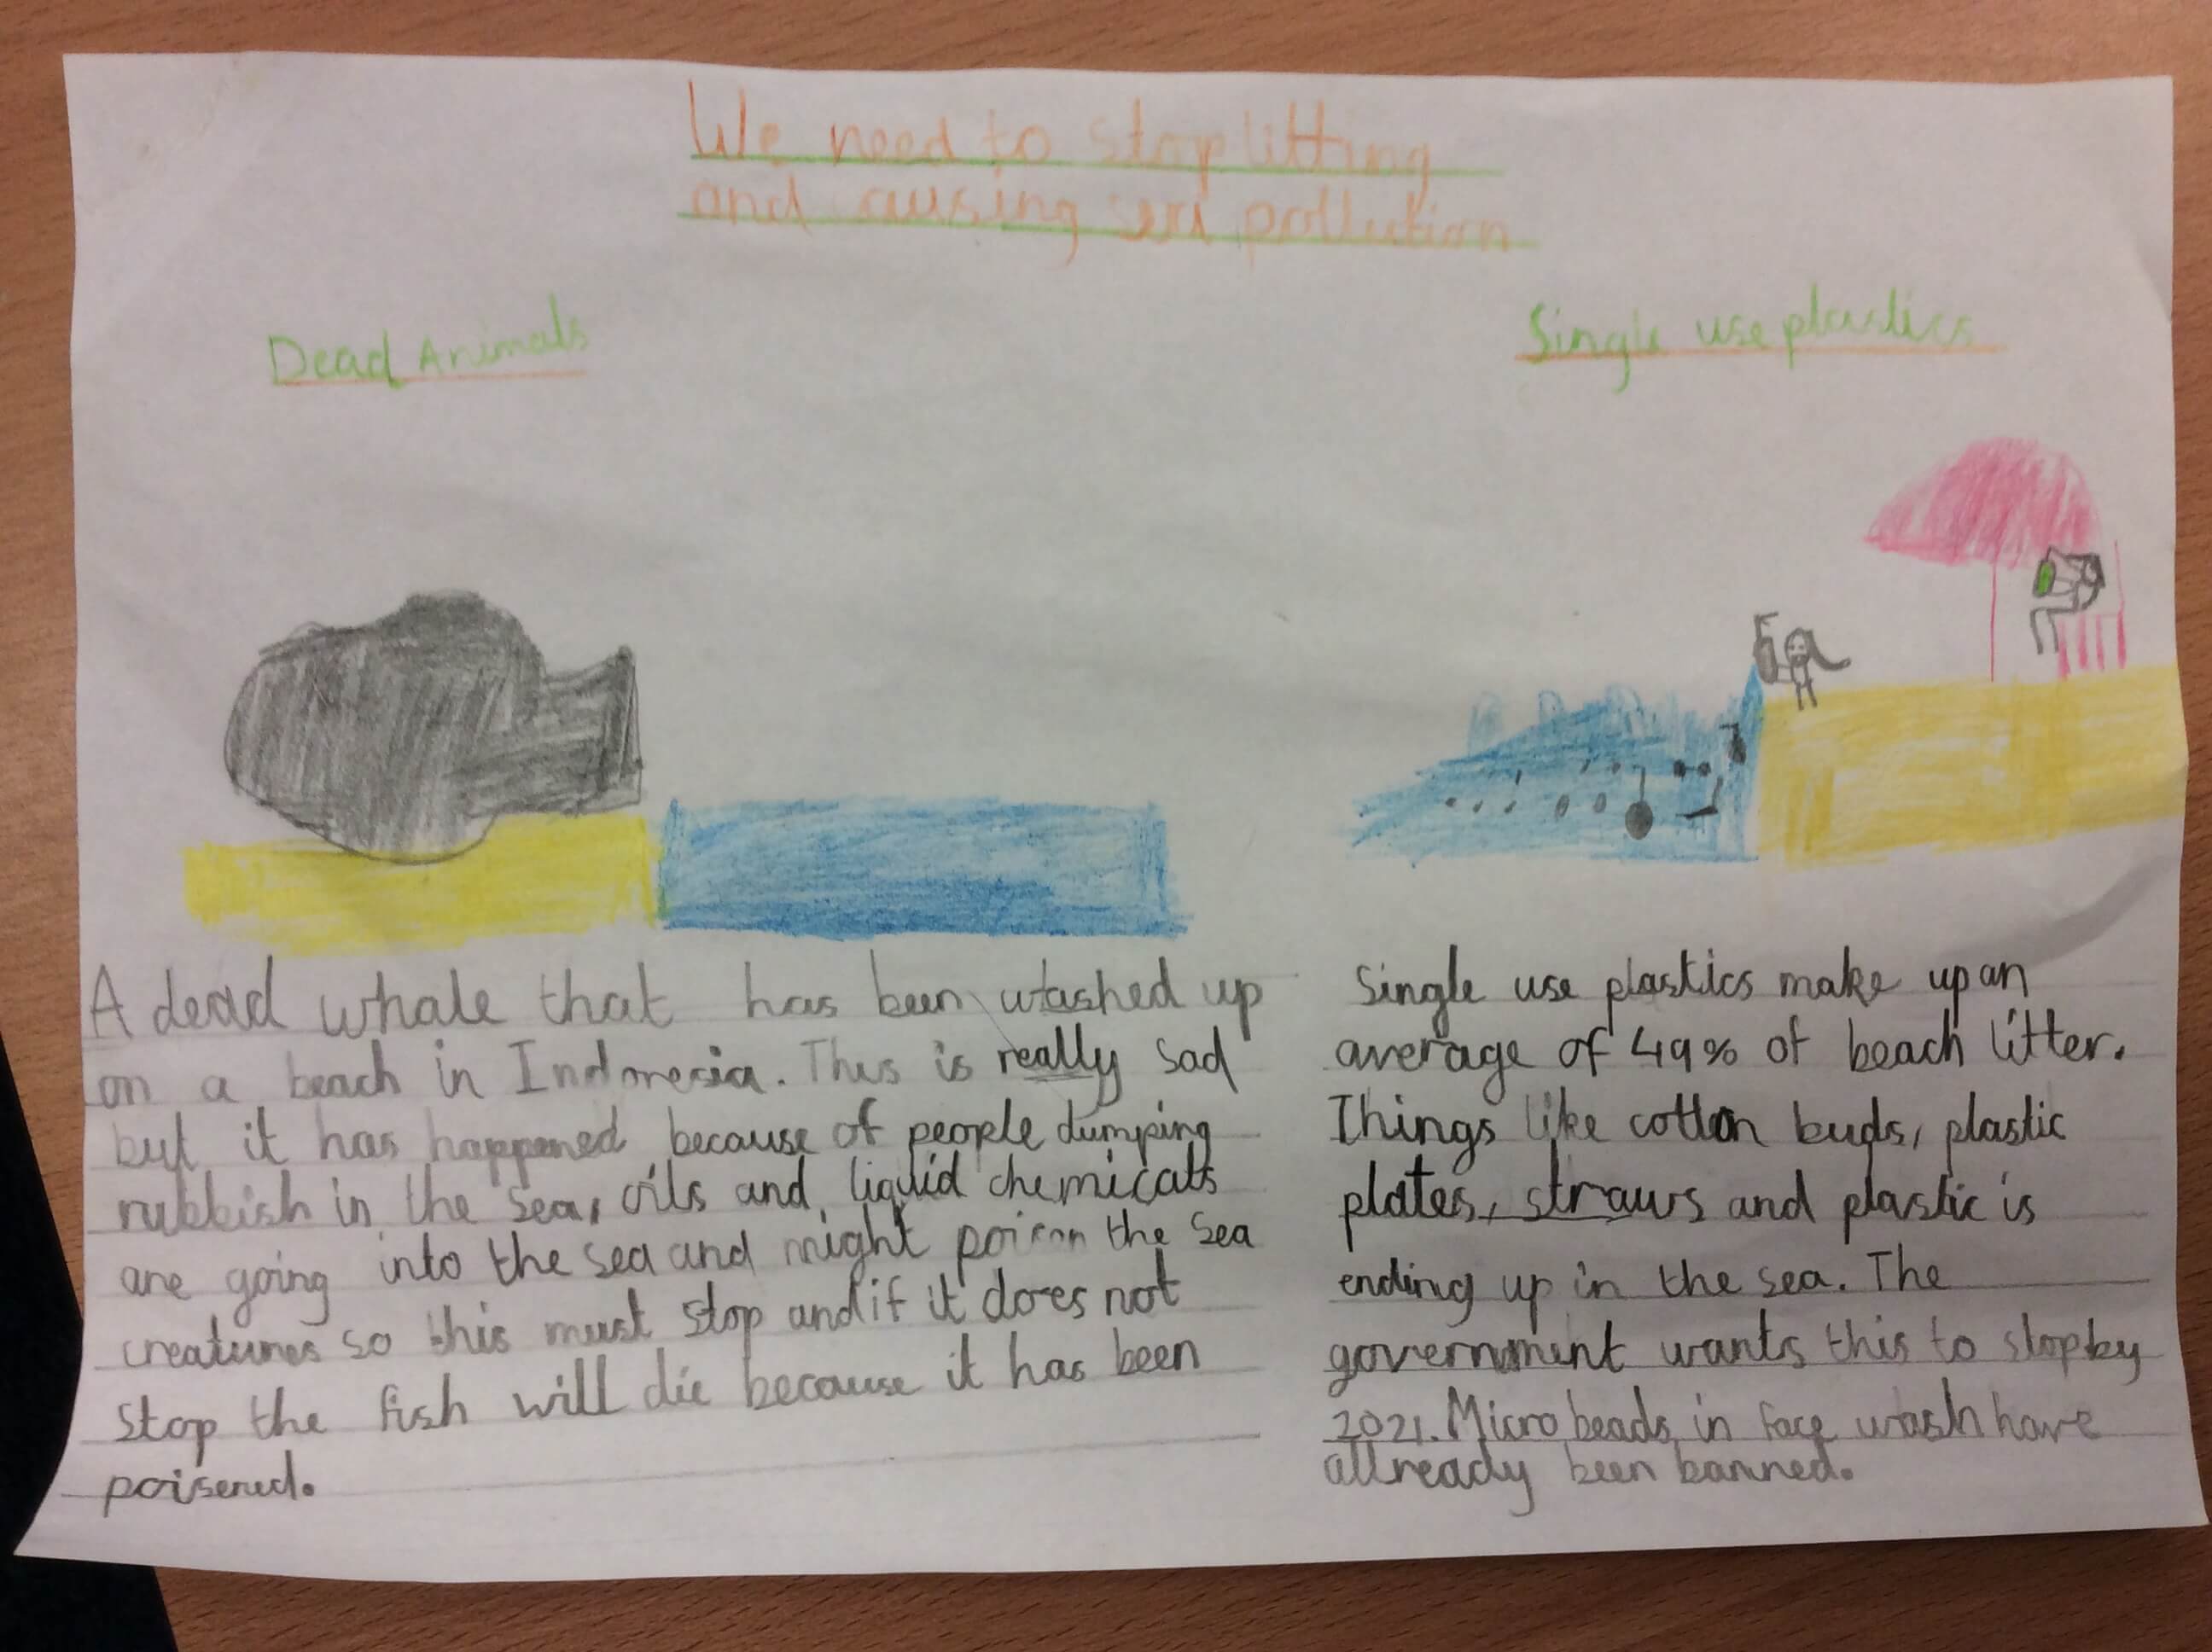 We need to stop litting
and causing sea pollution
Dead Animals
A dead whale that has been washed up
on a beach in Indonesia. This is really sad
but it has happened because of people dumping
rubbish in the sea, oils and liquid chemicals
are going into the sea and might poison the sea
creatures so this must stop and if it does not
stop the fish will die because it has been
poisened.
Single use plastics
Single use plastics make up an
average of 49% of beach litter.
Things like cotton buds, plastic
plates, straws and plastic is
ending up in the sea. The
government wants this to stop by
2021. Micro beads in face wash have
allready been banned.